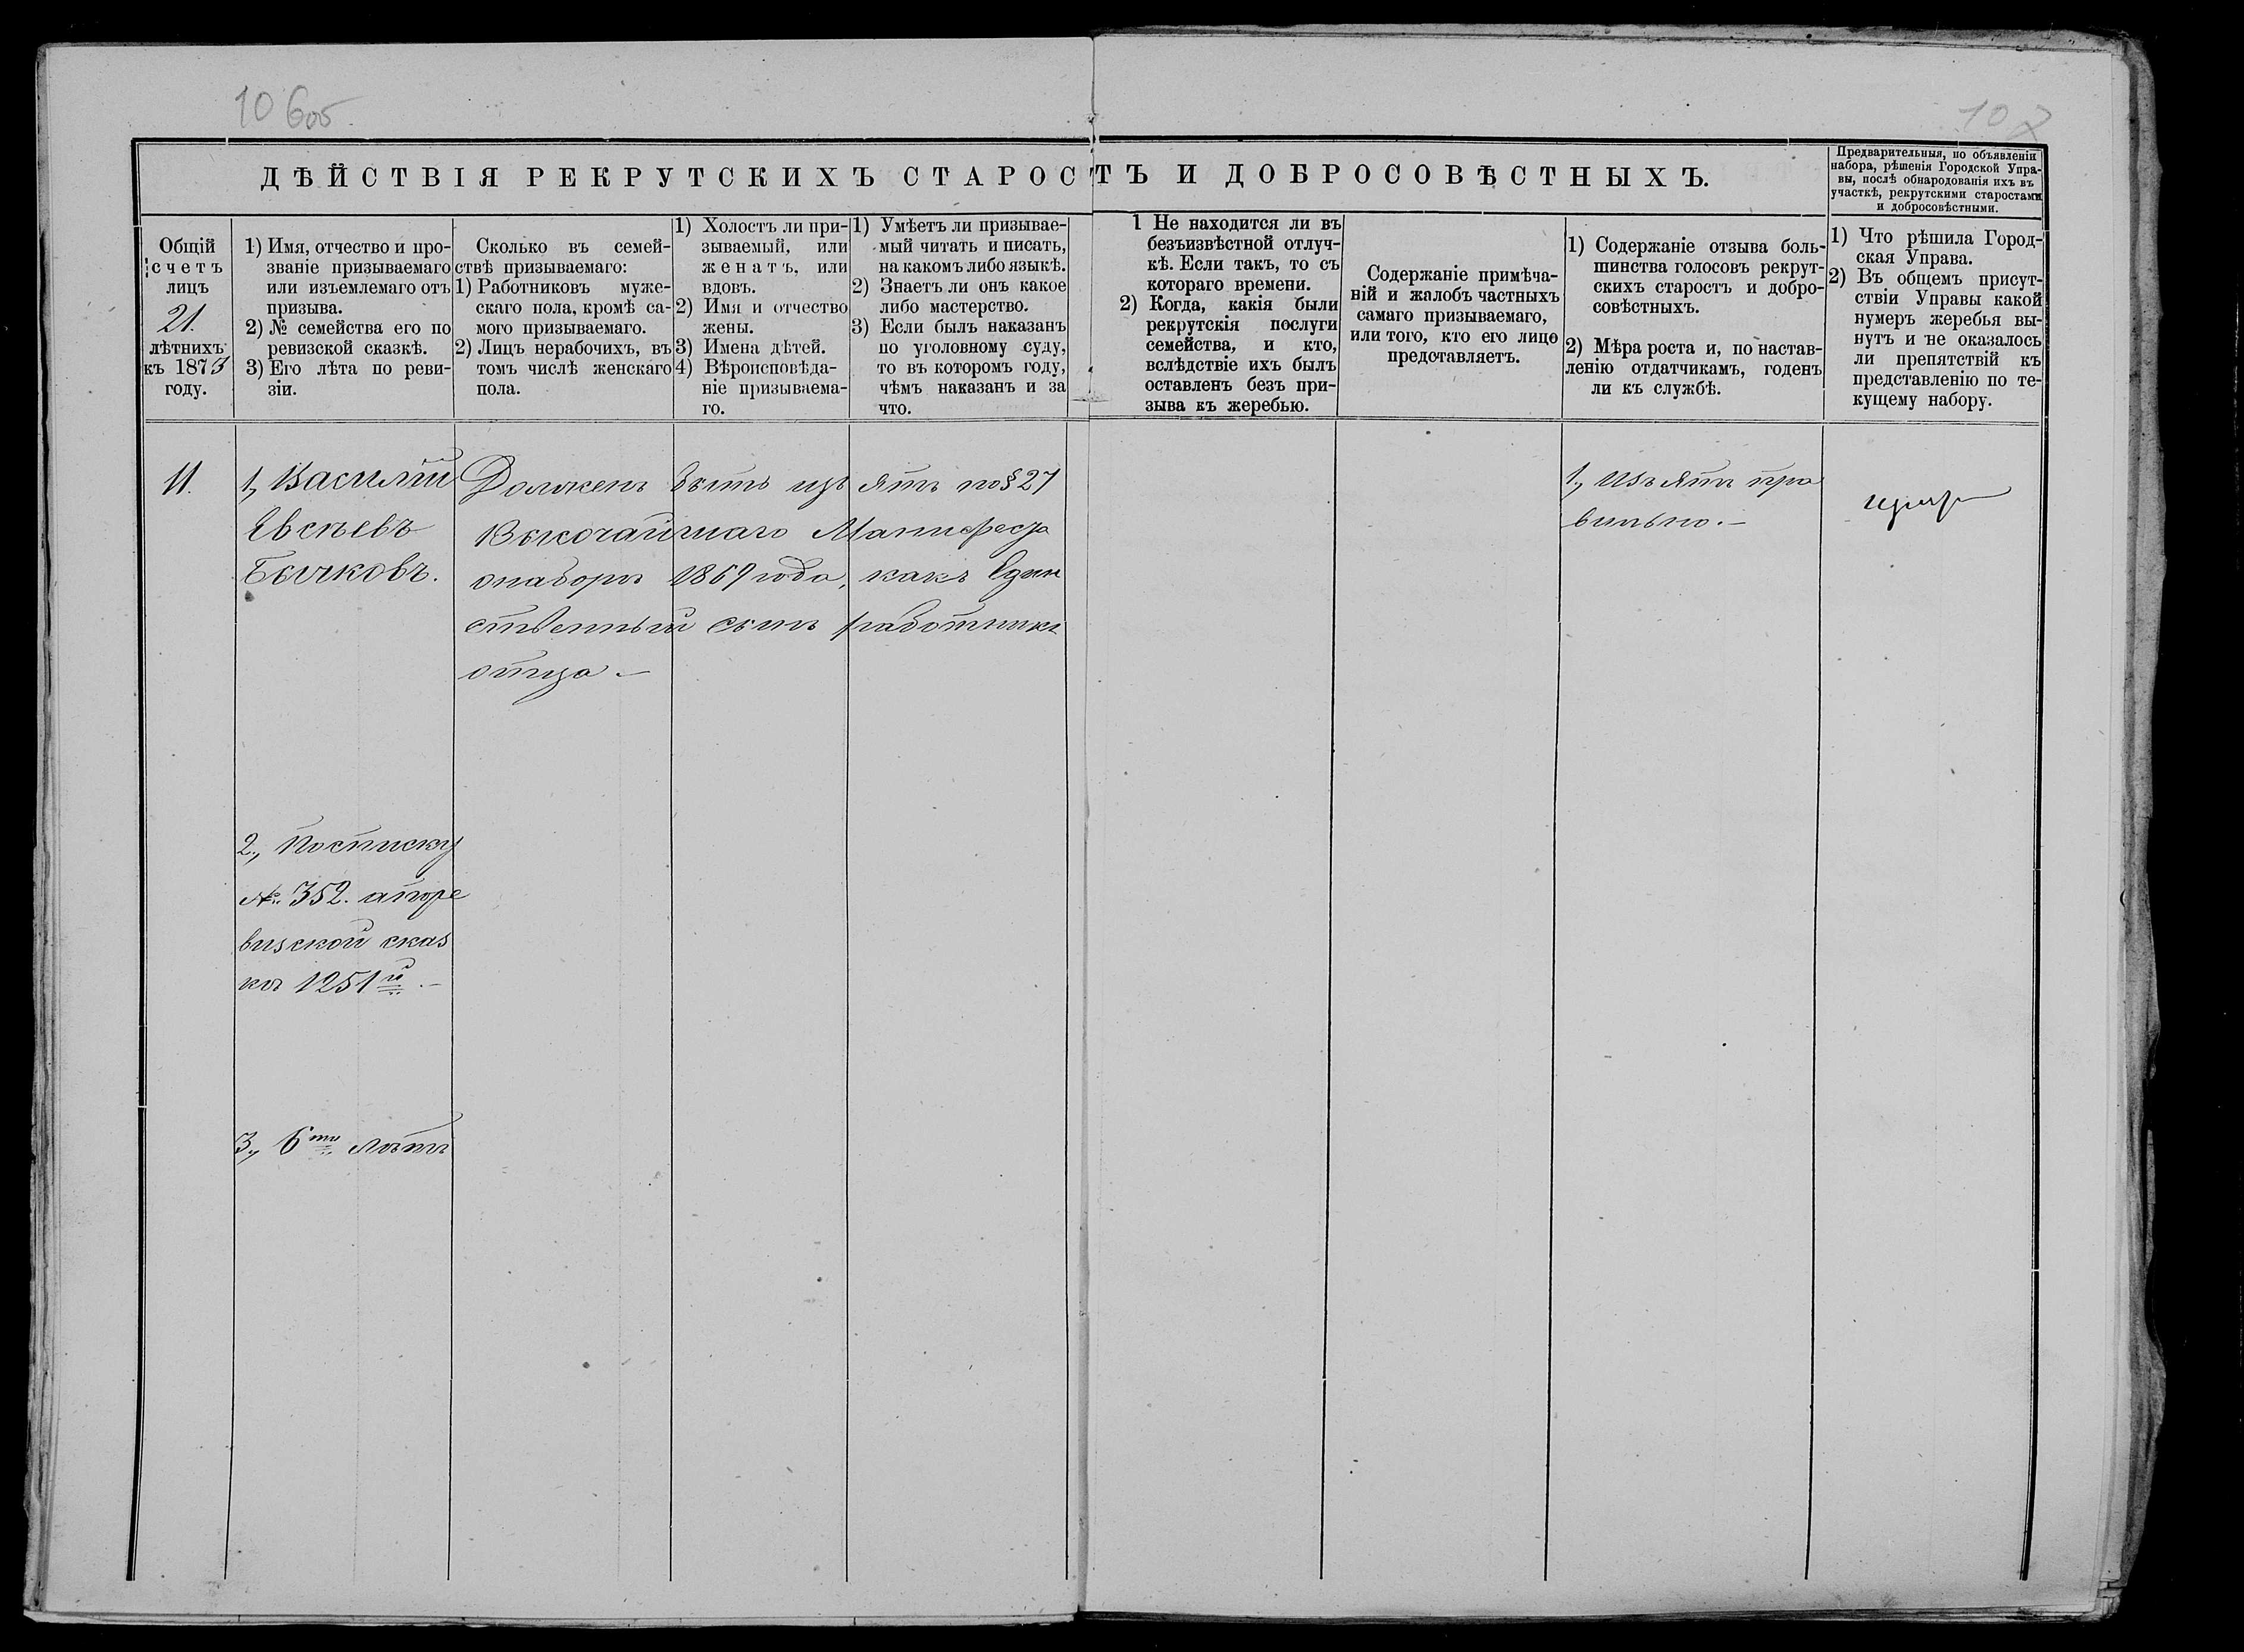 10 6об
107
ДѢЙСТВІЯ РЕКРУТСКИХЪ СТАРОСТЪ И ДОБРОСОВѢСТНЫХЪ.
Предварительныя, по объявленіи
набора, рѣшенія Городской Упра-
вы, послѣ обнародованія ихъ въ
участкѣ, рекрутскими старостами
и добросовѣстными.
Общій
счетъ
лицъ
21.
лѣтнихъ
къ 1873
году.
1) Имя, отчество и про-
званіе призываемаго
или изъемлемаго отъ
призыва.
2) № семейства его по
ревизской сказкѣ.
3) Его лѣта по реви-
зіи.
Сколько въ семей-
ствѣ призываемаго:
1) Работниковъ муже-
скаго пола, кромѣ са-
мого призываемаго.
2) Лицъ нерабочихъ, въ
томъ числѣ женскаго
пола.
1) Холостъ ли при-
зываемый, или
женатъ, или
вдовъ.
2) Имя и отчество
жены.
3) Имена дѣтей.
4) Вѣроисповѣда-
ніе призываема-
го.
1) Умѣетъ ли призывае-
мый читать и писать,
на какомъ либо языкѣ.
2) Знаетъ ли онъ какое
либо мастерство.
3) Если былъ наказанъ
по уголовному суду,
то въ которомъ году,
чѣмъ наказанъ и за
что.
1 Не находится ли въ
безъизвѣстной отлуч-
кѣ. Если такъ, то съ
котораго времени.
2) Когда, какія были
рекрутскія послуги
семейства, и кто,
вслѣдствіе ихъ былъ
оставленъ безъ при-
зыва къ жеребью.
Содержаніе примѣча-
ній и жалобъ частныхъ
самаго призываемаго,
или того, кто его лице
предоставляетъ.
1) Содержаніе отзыва боль-
шинства голосовъ рекрут-
скихъ старостъ и добро-
совѣстныхъ.
2) Мѣра роста и, по настав-
ленію отдатчикамъ, годенъ
ли къ службѣ.
1) Что рѣшила Город-
ская Управа.
2) Въ общемъ присут-
ствіи Управы какой
нумеръ жеребья вы-
нутъ и не оказалось
ли препятствій къ
представленію по те-
кущему набору.
11.
1, Василій
Евсѣевъ
Бычковъ.
2., Посписку
№ 352. апоре
визской сказ
кѣ 1251й. –
3., 6ти лѣтъ
Долженъ быть изъятъ по § 27
Высочайшаго Манифеста
онаборѣ 1869 года, какъ Един
ственный сынъ работникъ
отца. –
1., Изъятъ пра
вильно. –